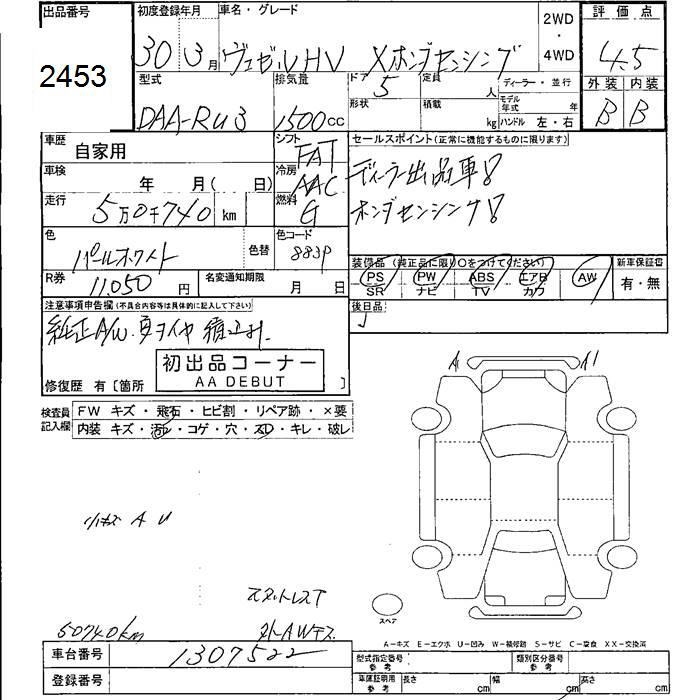 出品番号 初度登録年月 車名・グレード 2WD・4WD 評価点
2453 30年3月 ヴェゼルHV Xホンダセンシング 4.5
型式 排気量 ドア 5 定員 人 ディーラー・並行 外装 内装
DAA-RU3 1500cc 形状 積載 kg モデル年式 年 ハンドル 左・右 B B
車歴 自家用 シフト FAT セールスポイント(正常に機能するものに限ります)
車検 年 月(日) 冷房 AAC ディーラー出品車!
走行 5万0千740km 燃料 G ホンダセンシング!
色 パールホワイト 色替 色コード 883P
装備品(純正品に限り○をつけてください) 新車保証書
PS PW ABS エアB AW 有・無
SR ナビ TV カワ
R券 11,050円 名変通知期限 月 日
後日品
注意事項申告欄(不具合内容等は具体的に記入して下さい)
純正A/W.夏タイヤ積込み.
初出品コーナー
AA DEBUT
修復歴 有〔箇所 〕
A1 A1
検査員記入欄 FW キズ・飛石・ヒビ割・リペア跡・×要
内装 キズ・汚れ・コゲ・穴・スレ・キレ・破レ
小キズ A U
スタットレスT
50740km
スペア
A-キズ E-エクボ U-凹み W-補修跡 S-サビ C-腐食 XX-交換済
車台番号 1307522
型式指定番号 参考 類別区分番号 参考
登録番号
車庫証明用 参考 長さ cm 幅 cm 高さ cm